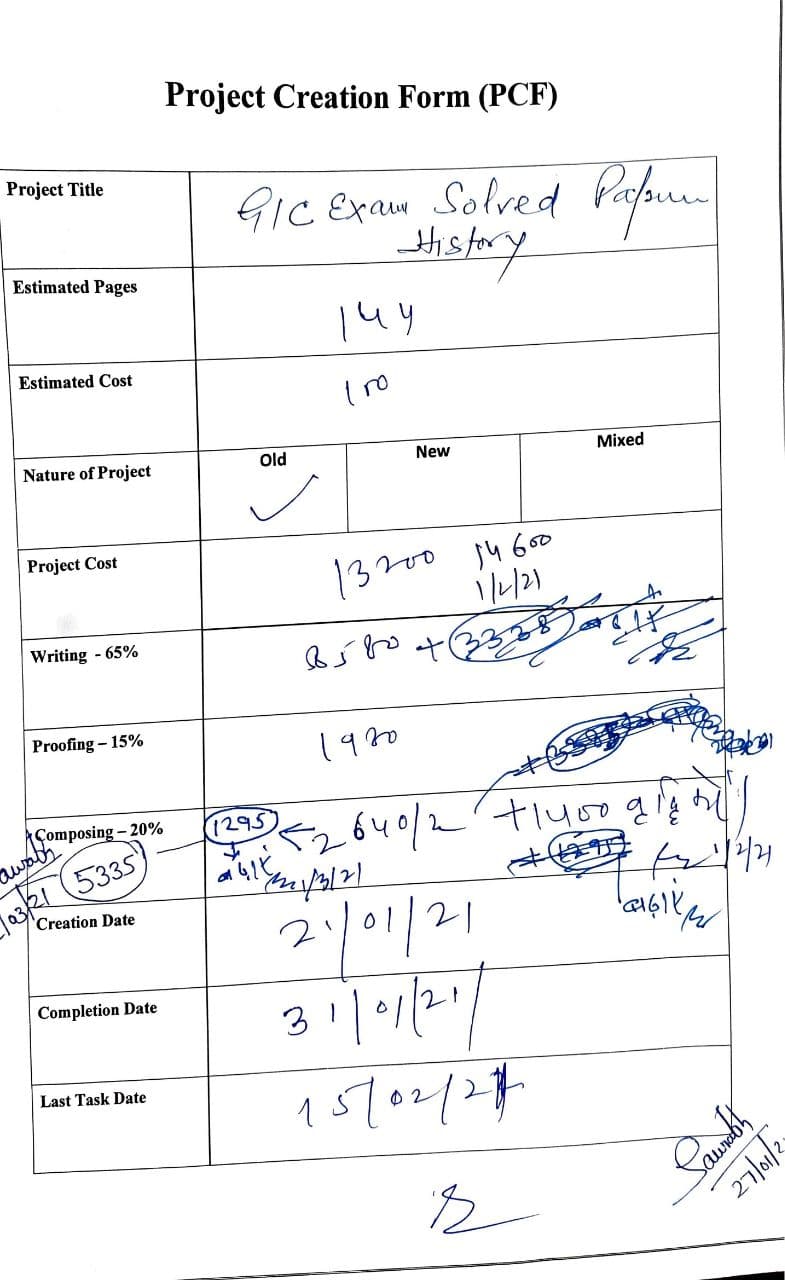 Project Creation Form (PCF)
Project Title
GIC Exam Solved
History
Estimated Pages
144
Estimated Cost
100
Nature of Project
Old
New
Mixed
Project Cost
13200 14600
1/2/21
Writing - 65%
8580 +
Proofing – 15%
1980
Composing – 20%
1295 ← 2640/2 +1400
1/3/21
1/2/21
5335
Creation Date
21/01/21
Completion Date
31/01/21
Last Task Date
15/02/21
Saurabh
27/01/2